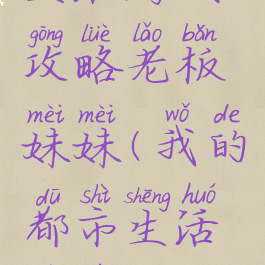 gōng lüè lǎo bǎn
攻略老板
mèi mèi wǒ de
妹妹(我的
dū shì shēng huó
都市生活